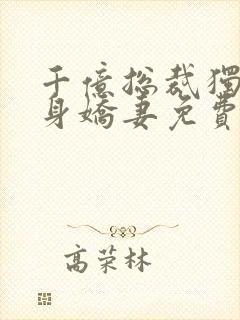 千億总裁獨
身嬌妻免費
高荣林